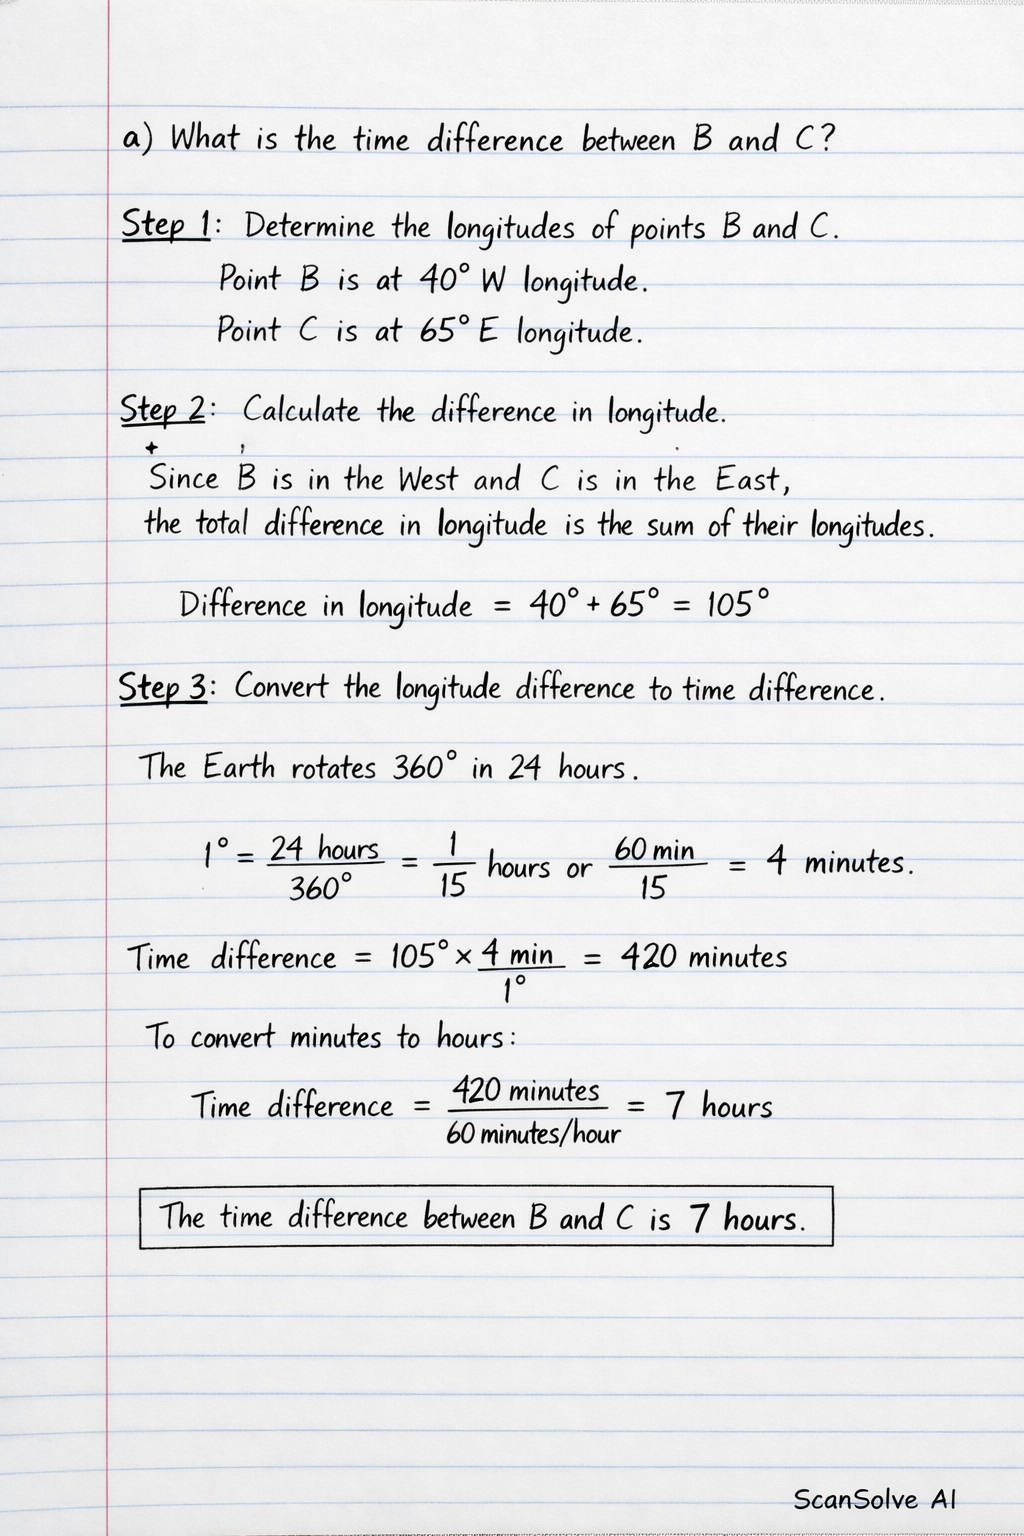 a) What is the time difference between B and C?
Step 1: Determine the longitudes of points B and C.
Point B is at 40° W longitude.
Point C is at 65° E longitude.
Step 2: Calculate the difference in longitude.
Since B is in the West and C is in the East,
the total difference in longitude is the sum of their longitudes.
Difference in longitude = 40° + 65° = 105°
Step 3: Convert the longitude difference to time difference.
The Earth rotates 360° in 24 hours.
1° = 24 hours / 360° = 1 / 15 hours or 60 min / 15 = 4 minutes.
Time difference = 105° × 4 min / 1° = 420 minutes
To convert minutes to hours:
Time difference = 420 minutes / 60 minutes/hour = 7 hours
The time difference between B and C is 7 hours.
ScanSolve AI